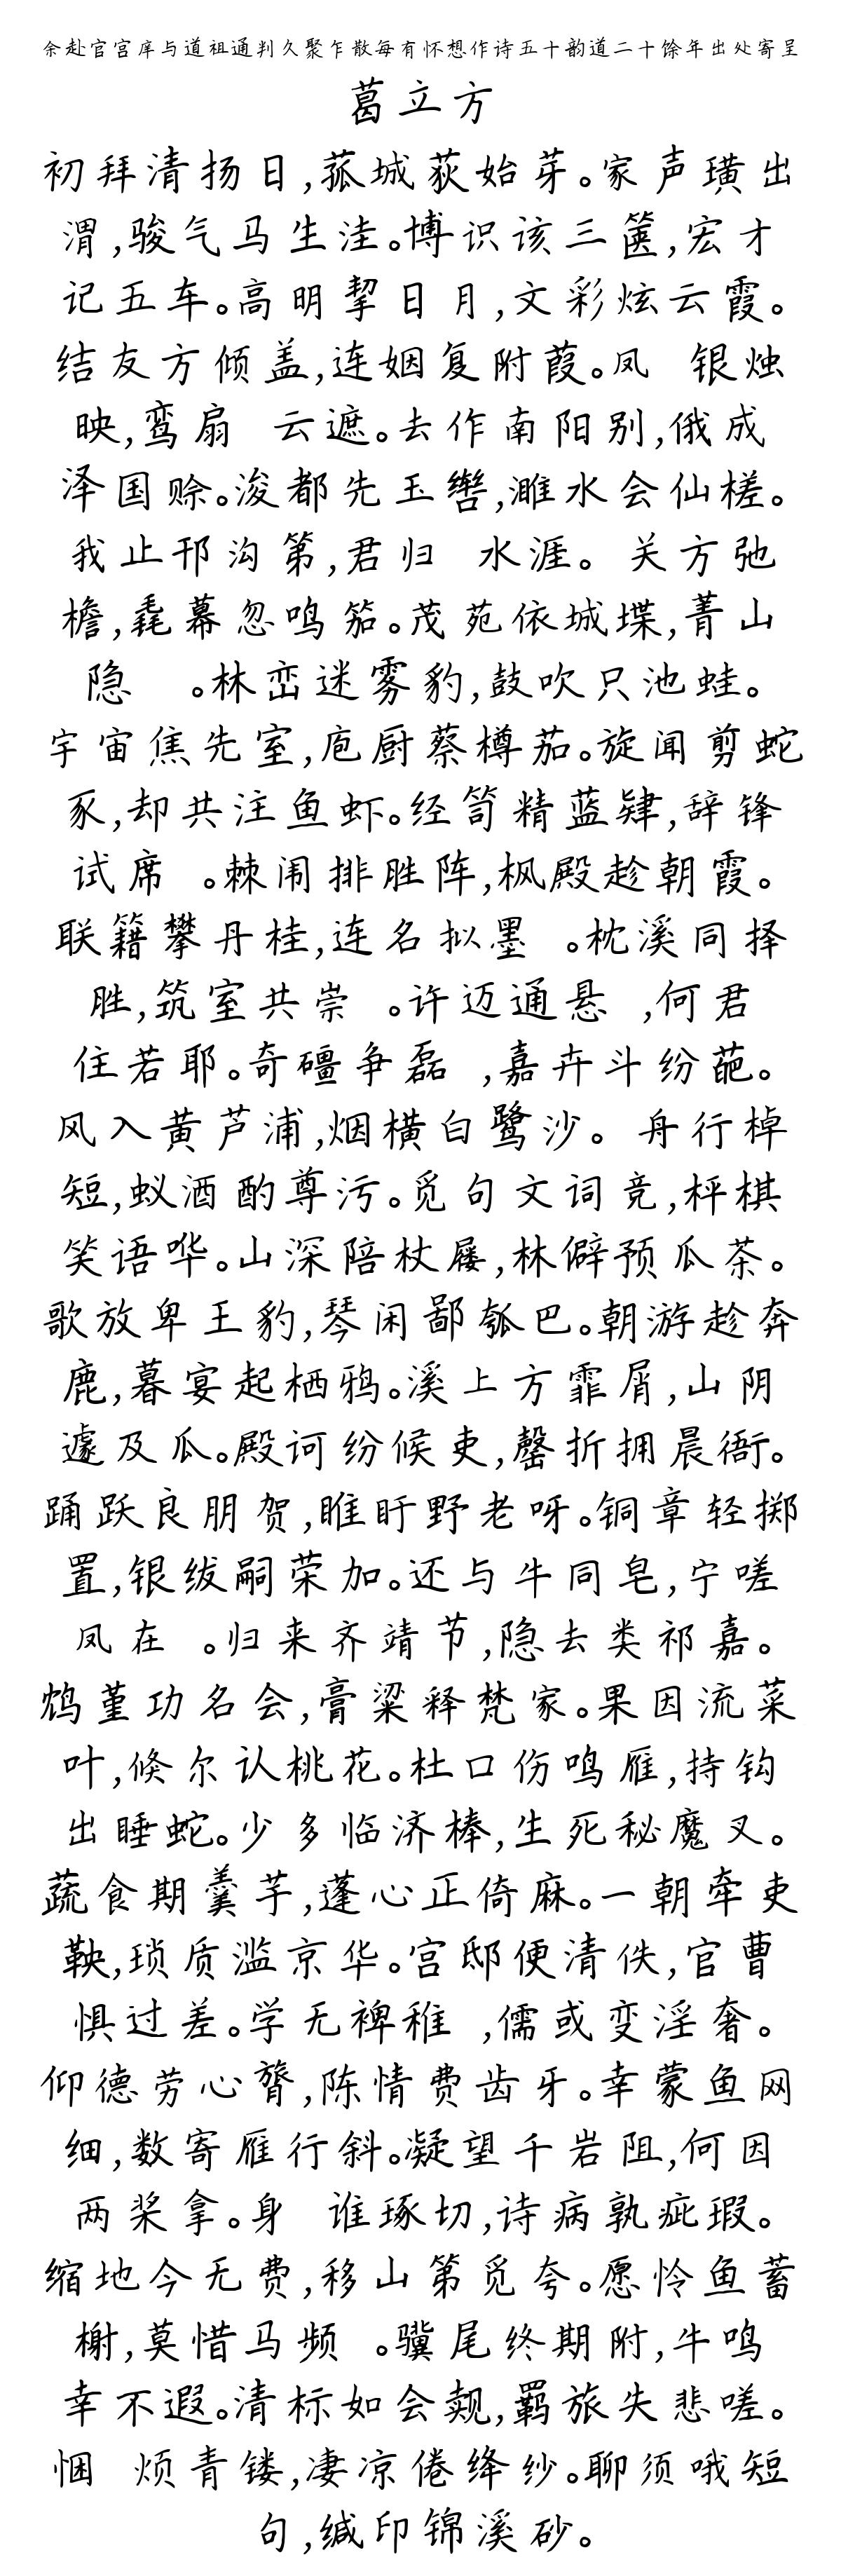 余赴官宫庠与道祖通判久聚乍散每有怀想作诗五十韵道二十馀年出处寄呈
葛立方
初拜清扬日,菰城荻始芽。家声璜出
渭,骏气马生洼。博识该三箧,宏才
记五车。高明挈日月,文彩炫云霞。
结友方倾盖,连姻复附葭。凤 银烛
映,鸾扇 云遮。去作南阳别,俄成
泽国赊。浚都先玉辔,濉水会仙槎。
我止邗沟第,君归 水涯。 关方弛
檐,毳幕忽鸣笳。茂苑依城堞,菁山
隐 。林峦迷雾豹,鼓吹只池蛙。
宇宙焦先室,庖厨蔡樽茄。旋闻剪蛇
豕,却共注鱼虾。经笥精蓝肄,辞锋
试席 。棘闱排胜阵,枫殿趁朝霞。
联籍攀丹桂,连名拟墨 。枕溪同择
胜,筑室共崇 。许迈通悬 ,何君
住若耶。奇礓争磊 ,嘉卉斗纷葩。
风入黄芦浦,烟横白鹭沙。 舟行棹
短,蚁酒酌尊污。觅句文词竞,枰棋
笑语哗。山深陪杖屦,林僻预瓜茶。
歌放卑王豹,琴闲鄙瓠巴。朝游趁奔
鹿,暮宴起栖鸦。溪上方霏屑,山阴
遽及瓜。殿诃纷候吏,罄折拥晨衙。
踊跃良朋贺,睢盱野老呀。铜章轻掷
置,银绂嗣荣加。还与牛同皂,宁嗟
凤在 。归来齐靖节,隐去类祁嘉。
鸩堇功名会,膏粱释梵家。果因流菜
叶,倏尔认桃花。杜口伤鸣雁,持钩
出睡蛇。少多临济棒,生死秘魔叉。
蔬食期羹芋,蓬心正倚麻。一朝牵吏
鞅,琐质滥京华。宫邸便清佚,官曹
惧过差。学无裨稚 ,儒或变淫奢。
仰德劳心膂,陈情费齿牙。幸蒙鱼网
细,数寄雁行斜。凝望千岩阻,何因
两桨拿。身 谁琢切,诗病孰疵瑕。
缩地今无费,移山第觅夸。愿怜鱼蓄
榭,莫惜马频 。骥尾终期附,牛鸣
幸不遐。清标如会觌,羁旅失悲嗟。
悃 烦青镂,凄凉倦绛纱。聊须哦短
句,缄印锦溪砂。